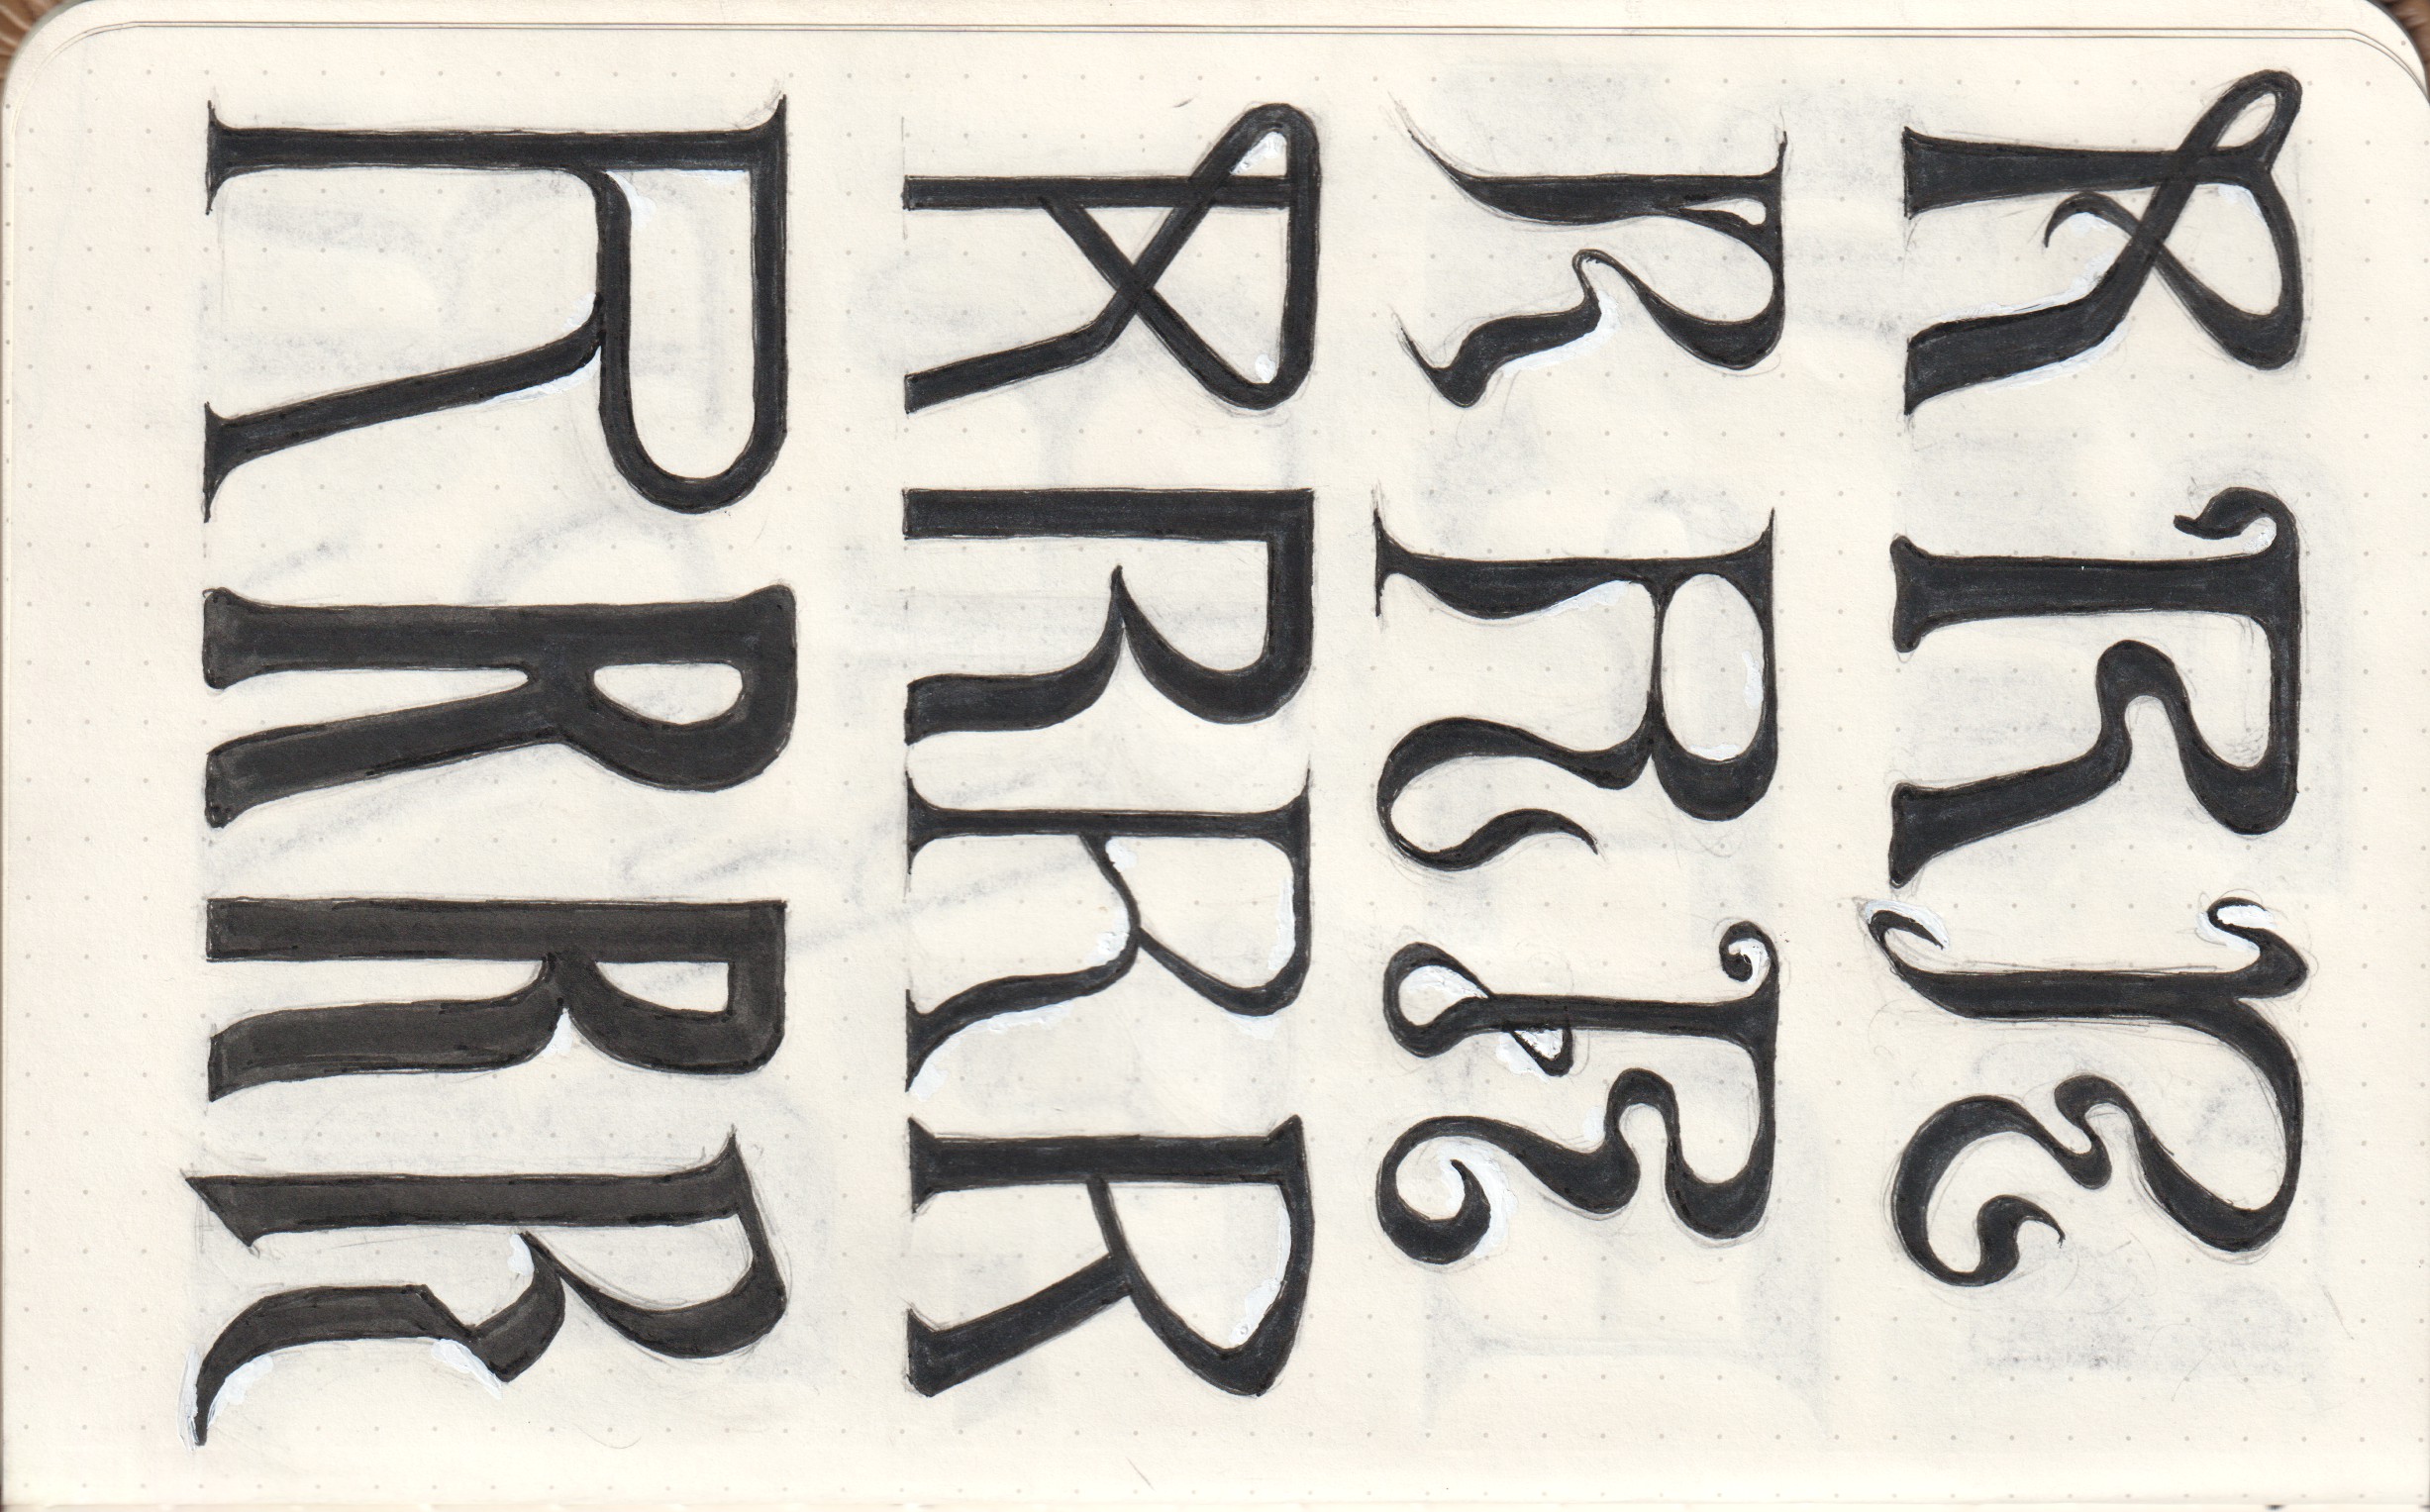 R R R
R R R
R R R R
R R R R